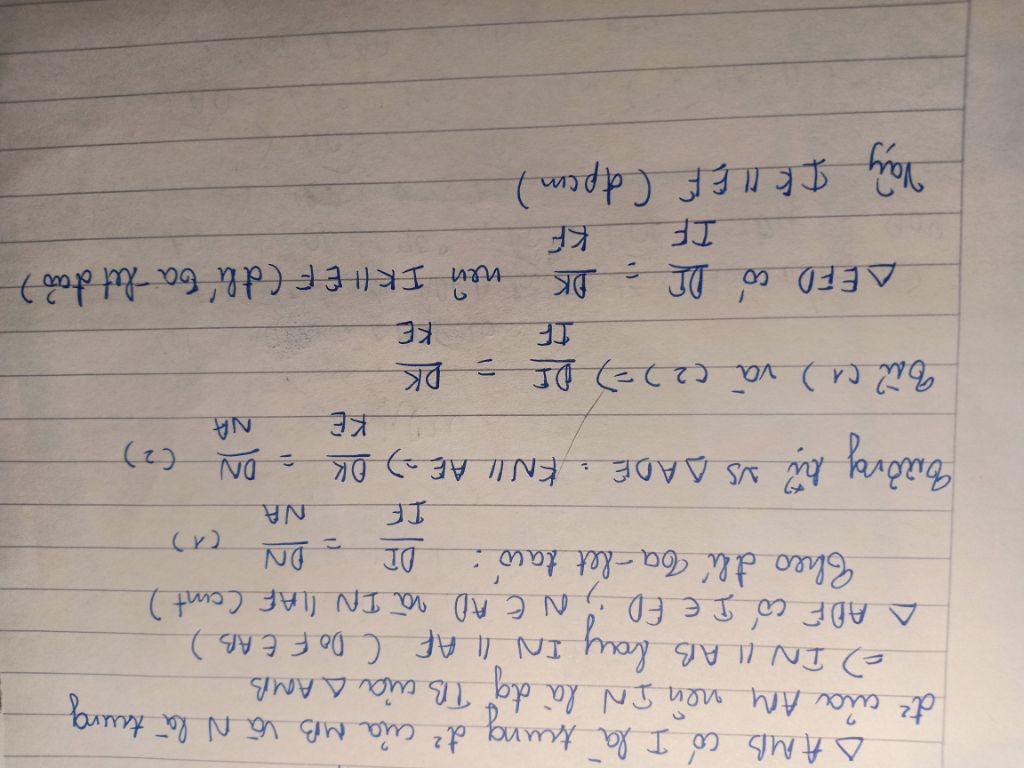 Δ AMB có I là trung đ² của MB và N là trung
đ² của AM nên IN là đg TB của Δ AMB
=> IN // AB hay IN // AF (Do F ∈ AB)
Δ ADF có I ∈ FD ; N ∈ AD và IN // AF (cmt)
Theo đlí Ta-let ta có : DI/IF = DN/NA (1)
Tương tự vs Δ ADE : KN // AE => DK/KE = DN/NA (2)
Từ (1) và (2) => DI/IF = DK/KE
Δ EFD có DI/IF = DK/KF nên IK // EF (đlí Ta-let đảo)
Vậy IK // EF (đpcm)